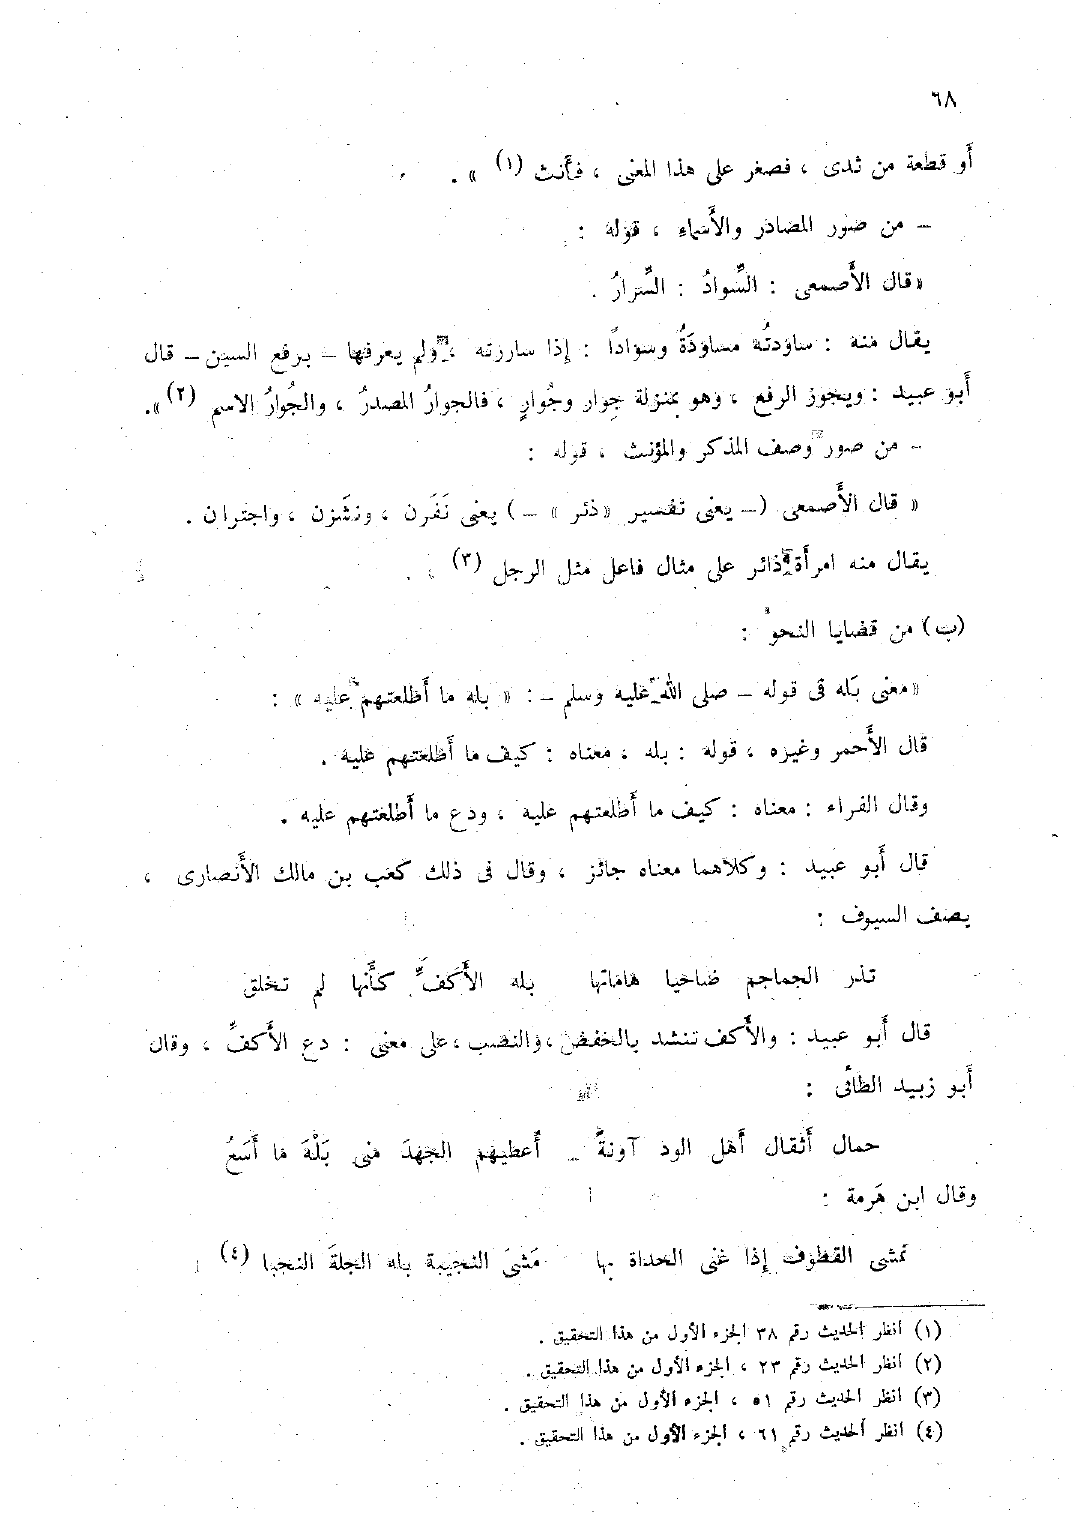 ٦٨
أو قطعة من ثدى ، فصغر على هذا المعنى ، فأنث (١) » .
– من صور المصادر والأسماء ، قوله :
«قال الأصمعى : السِّوادُ : السِّرارُ .
يقال منه : ساودتُه مساوَدَةً وسوادًا : إذا ساررته ، ولم يعرفها – برفع السين – قال
أبو عبيد : ويجوز الرفع ، وهو بمنزلة جِوار وجُوارٍ ، فالجوارُ المصدرُ ، والجُوارُ الاسم (٢) ».
– من صور وصف المذكر والمؤنث ، قوله :
« قال الأصمعى (– يعنى تفسير «ذئر » –) يعنى نَفَرن ، ونشَزن ، واجترأن .
يقال منه امرأة ذائر على مثال فاعل مثل الرجل (٣) .
(ب) من قضايا النحو :
«معنى بَله فى قوله – صلى الله عليه وسلم – : « بله ما أطلعتهم عليه » :
قال الأحمر وغيره ، قوله : بله ، معناه : كيف ما أطلعتهم عليه .
وقال الفراء : معناه : كيف ما أطلعتهم عليه ، ودع ما أطلعتهم عليه .
قال أبو عبيد : وكلاهما معناه جائز ، وقال فى ذلك كعب بن مالك الأنصارى ،
يصف السيوف :
تذر الجماجم ضاحيا هاماتها بله الأكفِّ كأنها لم تخلق
قال أبو عبيد : والأكف تنشد بالخفض ، والنصب ، على معنى : دع الأكفَّ ، وقال
أبو زبيد الطائى :
حمال أثقال أهل الود آونةً أُعطيهم الجهدَ منى بَلْهَ ما أَسَعُ
وقال ابن هَرمة :
تمشى القطوف إذا غنى الحداة بها مَشىَ النجيبة بله الجلةَ النجبا (٤)
(١) انظر الحديث رقم ٣٨ الجزء الأول من هذا التحقيق .
(٢) انظر الحديث رقم ٢٣ ، الجزء الأول من هذا التحقيق .
(٣) انظر الحديث رقم ٥١ ، الجزء الأول من هذا التحقيق .
(٤) انظر الحديث رقم ٦١ ، الجزء الأول من هذا التحقيق .